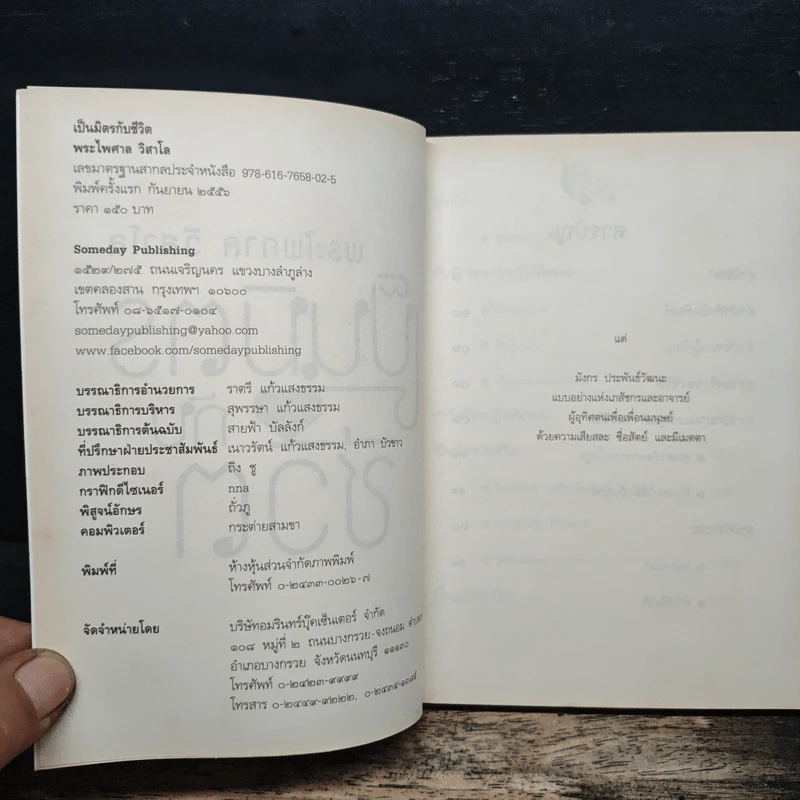 เป็นมิตรกับชีวิต
พระไพศาล วิสาโล
เลขมาตรฐานสากลประจำหนังสือ 978-616-7658-02-5
พิมพ์ครั้งแรก กันยายน ๒๕๕๖
ราคา ๑๕๐ บาท
Someday Publishing
๑๕๒๙/๒๗๕ ถนนเจริญนคร แขวงบางลำภูล่าง
เขตคลองสาน กรุงเทพฯ ๑๐๖๐๐
โทรศัพท์ ๐๘-๖๕๑๗-๐๑๐๔
somedaypublishing@yahoo.com
www.facebook.com/somedaypublishing
บรรณาธิการอำนวยการ ราตรี แก้วแสงธรรม
บรรณาธิการบริหาร สุพรรษา แก้วแสงธรรม
บรรณาธิการต้นฉบับ สายฟ้า บัลลังก์
ที่ปรึกษาฝ่ายประชาสัมพันธ์ เนาวรัตน์ แก้วแสงธรรม, อำภา บัวขาว
ภาพประกอบ ถิง ชู
กราฟิกดีไซเนอร์ nna
พิสูจน์อักษร ถั่วภู
คอมพิวเตอร์ กระต่ายสามขา
พิมพ์ที่ ห้างหุ้นส่วนจำกัดภาพพิมพ์
โทรศัพท์ ๐-๒๔๓๓-๐๐๒๖-๗
จัดจำหน่ายโดย บริษัทอมรินทร์บุ๊คเซ็นเตอร์ จำกัด
๑๐๘ หมู่ที่ ๒ ถนนบางกรวย-จงถนอม
อำเภอบางกรวย จังหวัดนนทบุรี ๑๑๑๓๐
โทรศัพท์ ๐-๒๔๒๓-๙๙๙๙
โทรสาร ๐-๒๔๔๙-๙๒๒๒, ๐-๒๔๓๔-๑๓๘๕
แด่
มังกร ประพันธ์วัฒนะ
แบบอย่างแห่งเภสัชกรและอาจารย์
ผู้อุทิศตนเพื่อเพื่อนมนุษย์
ด้วยความเสียสละ ซื่อสัตย์ และมีเมตตา